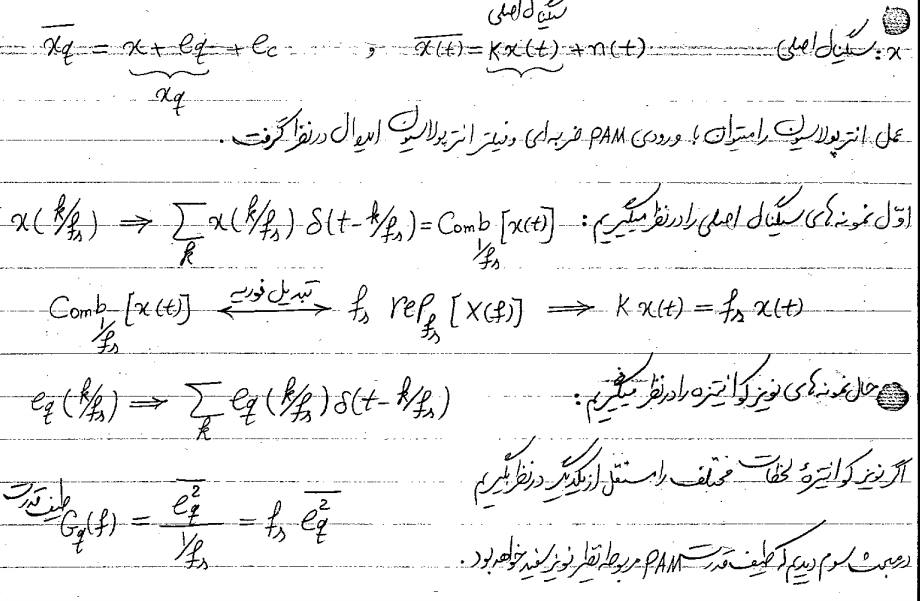 سیگنال اصلی
x̄q = x + eq + ec و x̄(t) = Kx(t) + n(t) x: سیگنال اصلی
xq
عمل انترپولاسیون را میتوان با ورودی PAM ضربه‌ای و فیلتر انترپولاسیون ایده‌آل در نظر گرفت.
اول نمونه‌های سیگنال اصلی را در نظر میگیریم: x(k/fs) ⇒ ∑k x(k/fs) δ(t-k/fs) = Comb1/fs [x(t)]
Comb1/fs [x(t)] ←تبدیل فوریه→ fs repfs [X(f)] ⇒ K x(t) = fs x(t)
حال نمونه‌های نویز کوانتیزه را در نظر میگیریم: eq(k/fs) ⇒ ∑k eq(k/fs) δ(t-k/fs)
اگر نویز کوانتیزهٔ لحظات مختلف را مستقل از یکدیگر در نظر بگیریم
طیف قدرت Gq(f) = \overline{eq²} / (1/fs) = fs \overline{eq²}
در مبحث سوم دیدیم که طیف قدرت PAM مربوطه نظیر نویز سفید خواهد بود.